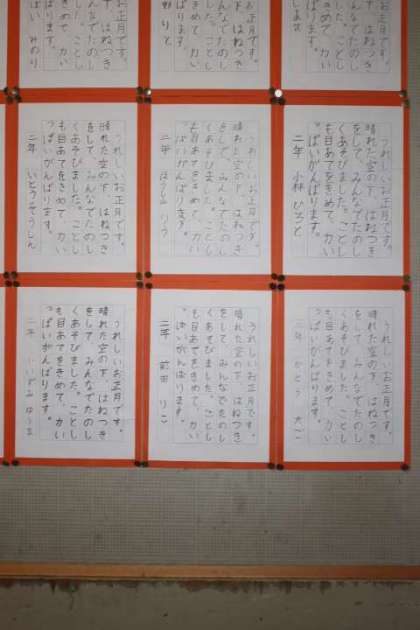 お正月です。
下、はねつき
みんなでたのし
した。ことし
きめて、力い
ります。
お正月です。
下、はねつき
みんなでたのし
した。ことし
きめて、力い
ります。
りと
お正月です。
下、はねつき
みんなでたのし
した。ことし
きめて、力い
ります。
みのり
うれしいお正月です。
晴れた空の下、はねつき
をして、みんなでたのし
くあそびました。ことし
も目あてをきめて、力い
っぱいがんばります。
二年 小林 ひろと
うれしいお正月です。
晴れた空の下、はねつき
をして、みんなでたのし
くあそびました。ことし
も目あてをきめて、力い
っぱいがんばります。
二年
うれしいお正月です。
晴れた空の下、はねつき
をして、みんなでたのし
くあそびました。ことし
も目あてをきめて、力い
っぱいがんばります。
二年 いとう そうしん
うれしいお正月です。
晴れた空の下、はねつき
をして、みんなでたのし
くあそびました。ことし
も目あてをきめて、力い
っぱいがんばります。
二年 かとう
うれしいお正月です。
晴れた空の下、はねつき
をして、みんなでたのし
くあそびました。ことし
も目あてをきめて、力い
っぱいがんばります。
二年 前田 りこ
うれしいお正月です。
晴れた空の下、はねつき
をして、みんなでたのし
くあそびました。ことし
も目あてをきめて、力い
っぱいがんばります。
二年 いずみ